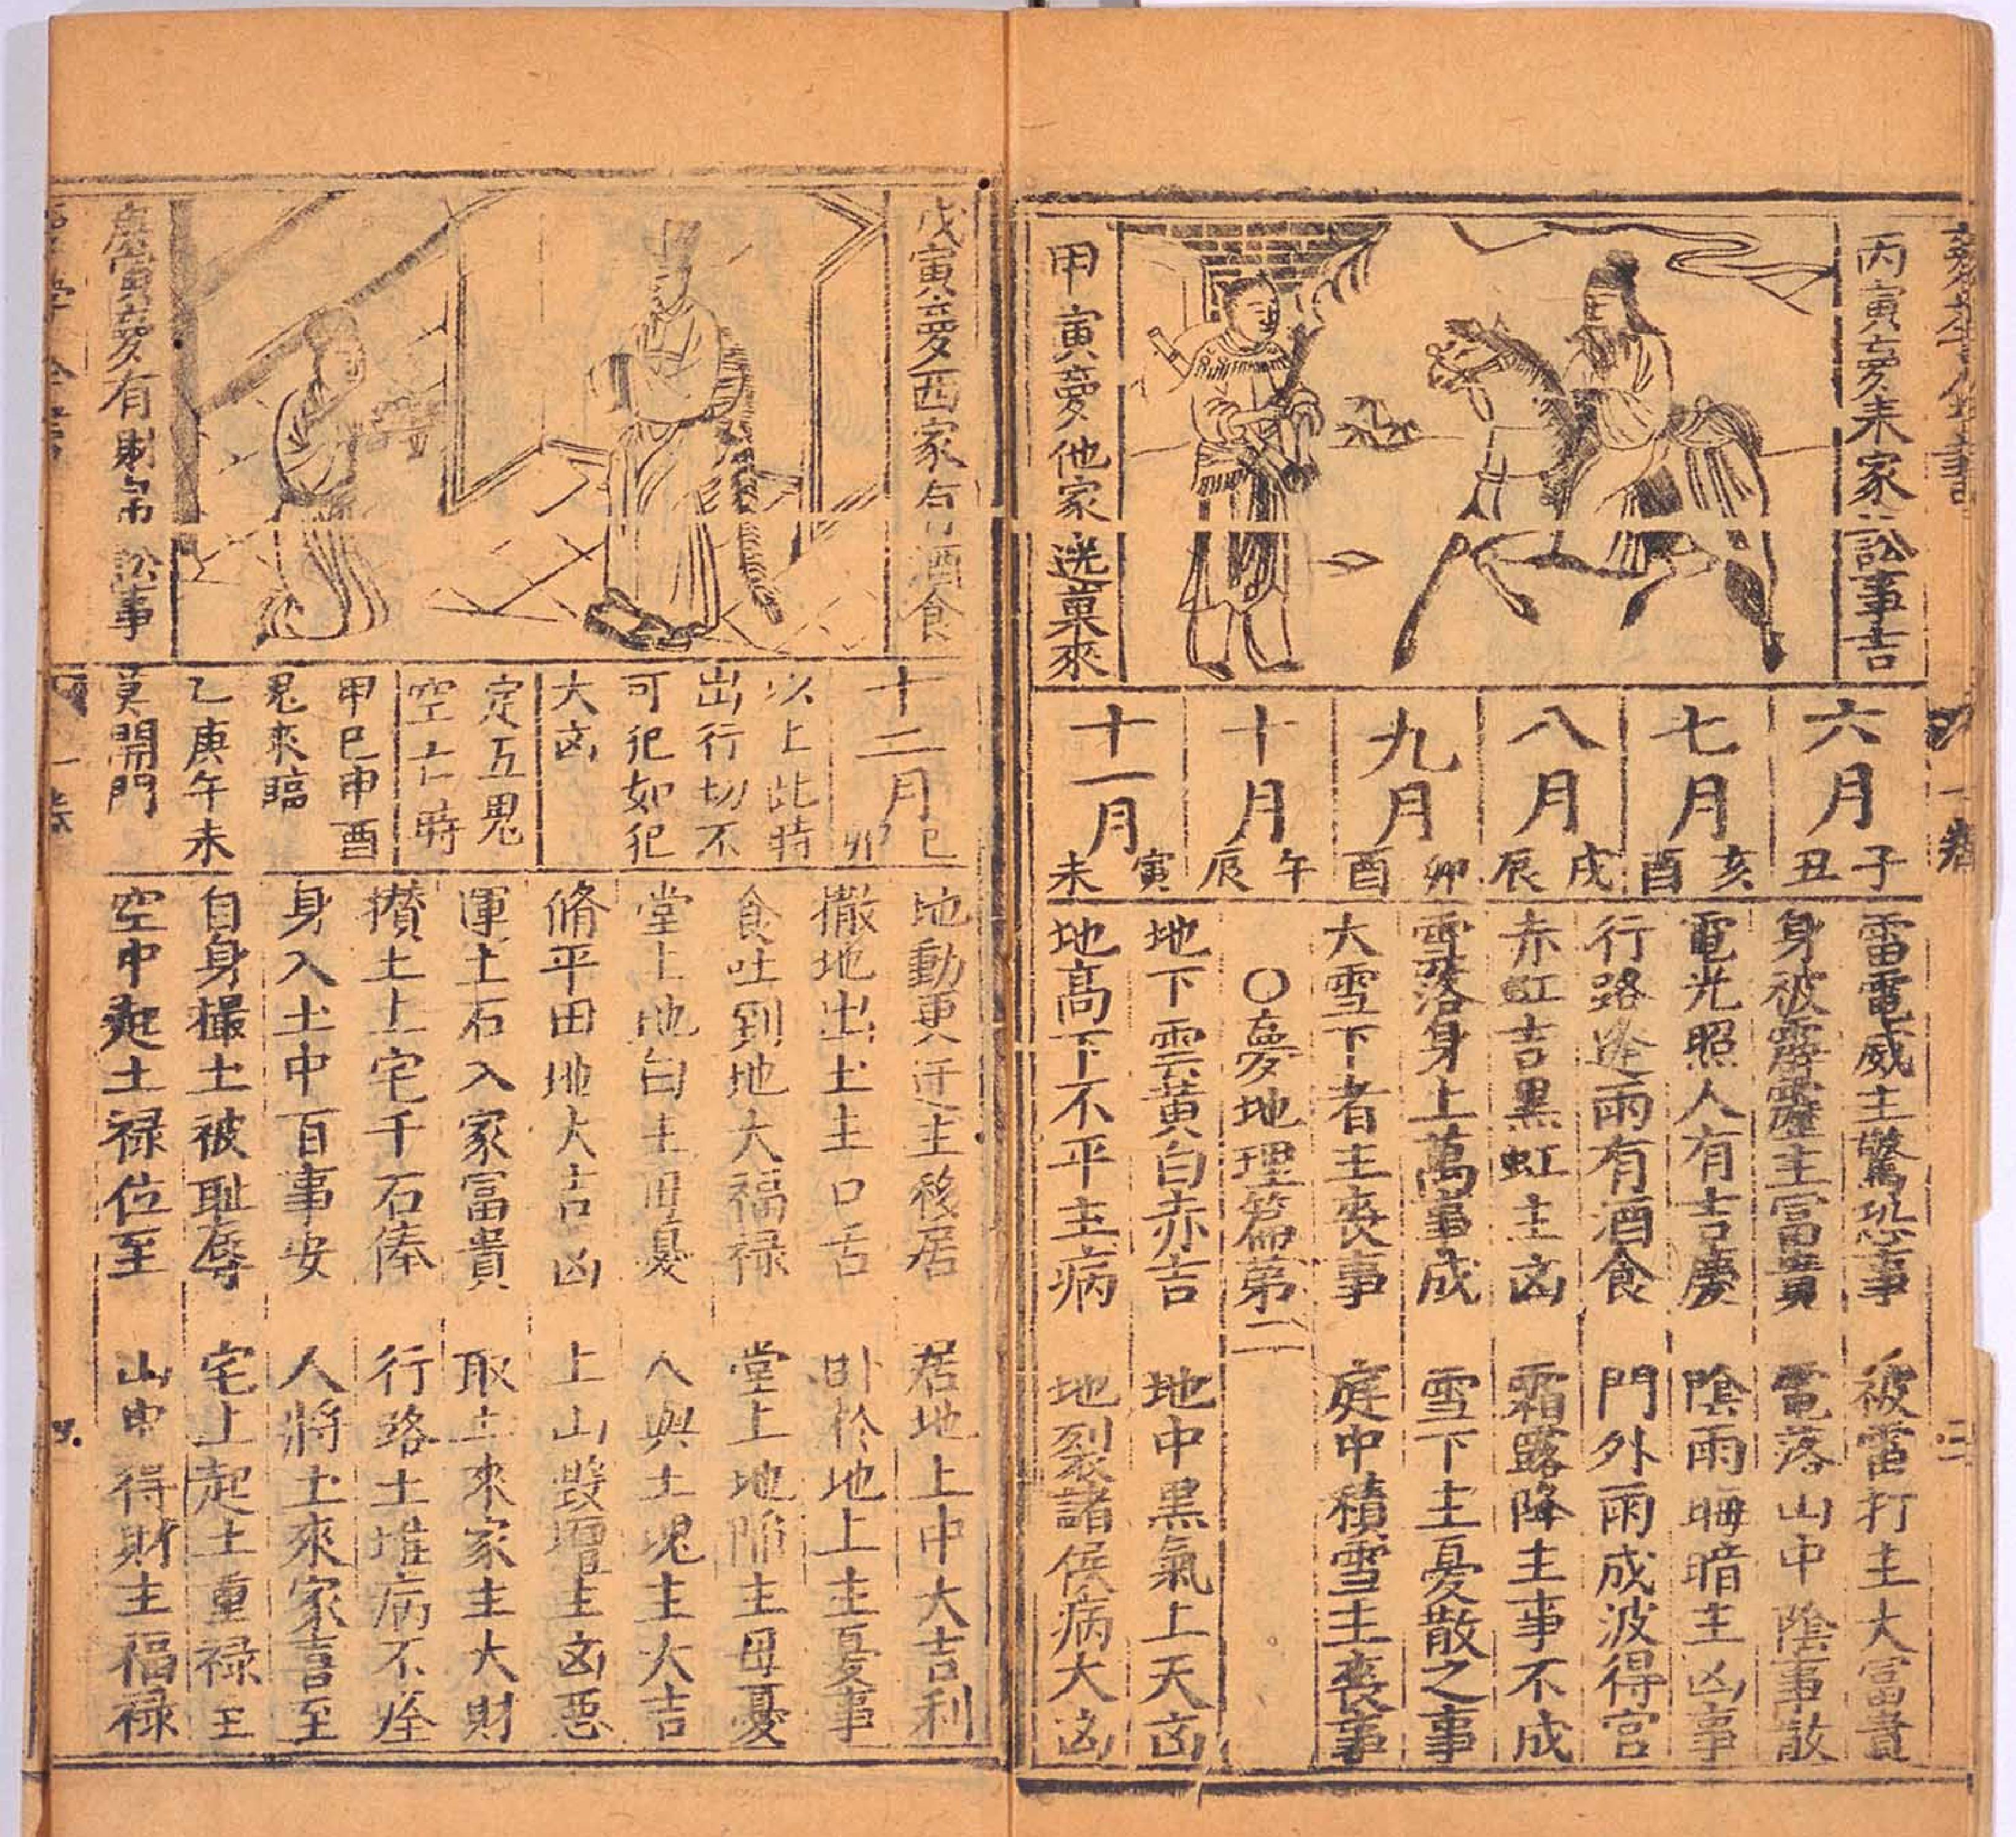 丙寅夣未家訟事吉
甲寅夣他家送菓來
六月
子
丑
七月
亥
酉
八月
戌
辰
九月
卯
酉
十月
午
辰
十一月
寅
未
雷電威主驚恐事 被雷打主大富貴
身被霹靂主富貴 電落山中陰事散
電光照人有吉慶 陰雨晦暗主凶事
行路逢雨有酒食 門外雨成波得官
赤虹吉黑虹主凶 霜露降主事不成
雪落身上萬事成 雪下主憂散之事
大雪下者主喪事 庭中積雪主喪事
〇夣地理篇第二
地下雲黄白赤吉 地中黒氣上天凶
地高下不平主病 地裂諸侯病大凶
戊寅夣西家有酒食
庚寅夣有財帛訟事
十二月
巳
卯
以上此時
出行切不
可犯如犯
大凶
定五鬼
空亡時
甲巳申酉
鬼來臨
乙庚午未
莫開門
地動更迁主移居 居地上中大吉利
撒地出土主口舌 卧於地上主憂事
食吐到地大福禄 堂上地陷主毋憂
堂上地白主毋憂 人與土塊主大吉
脩平田地大吉凶 上山毀壇主凶惡
運土石入家富貴 取土來家主大財
攢土上宅千石俸 行路土堆病不痊
身入土中百事安 人將土來家喜至
自身撮土被耻辱 宅上起土重禄主
空中起土禄位至 山中得財主福禄